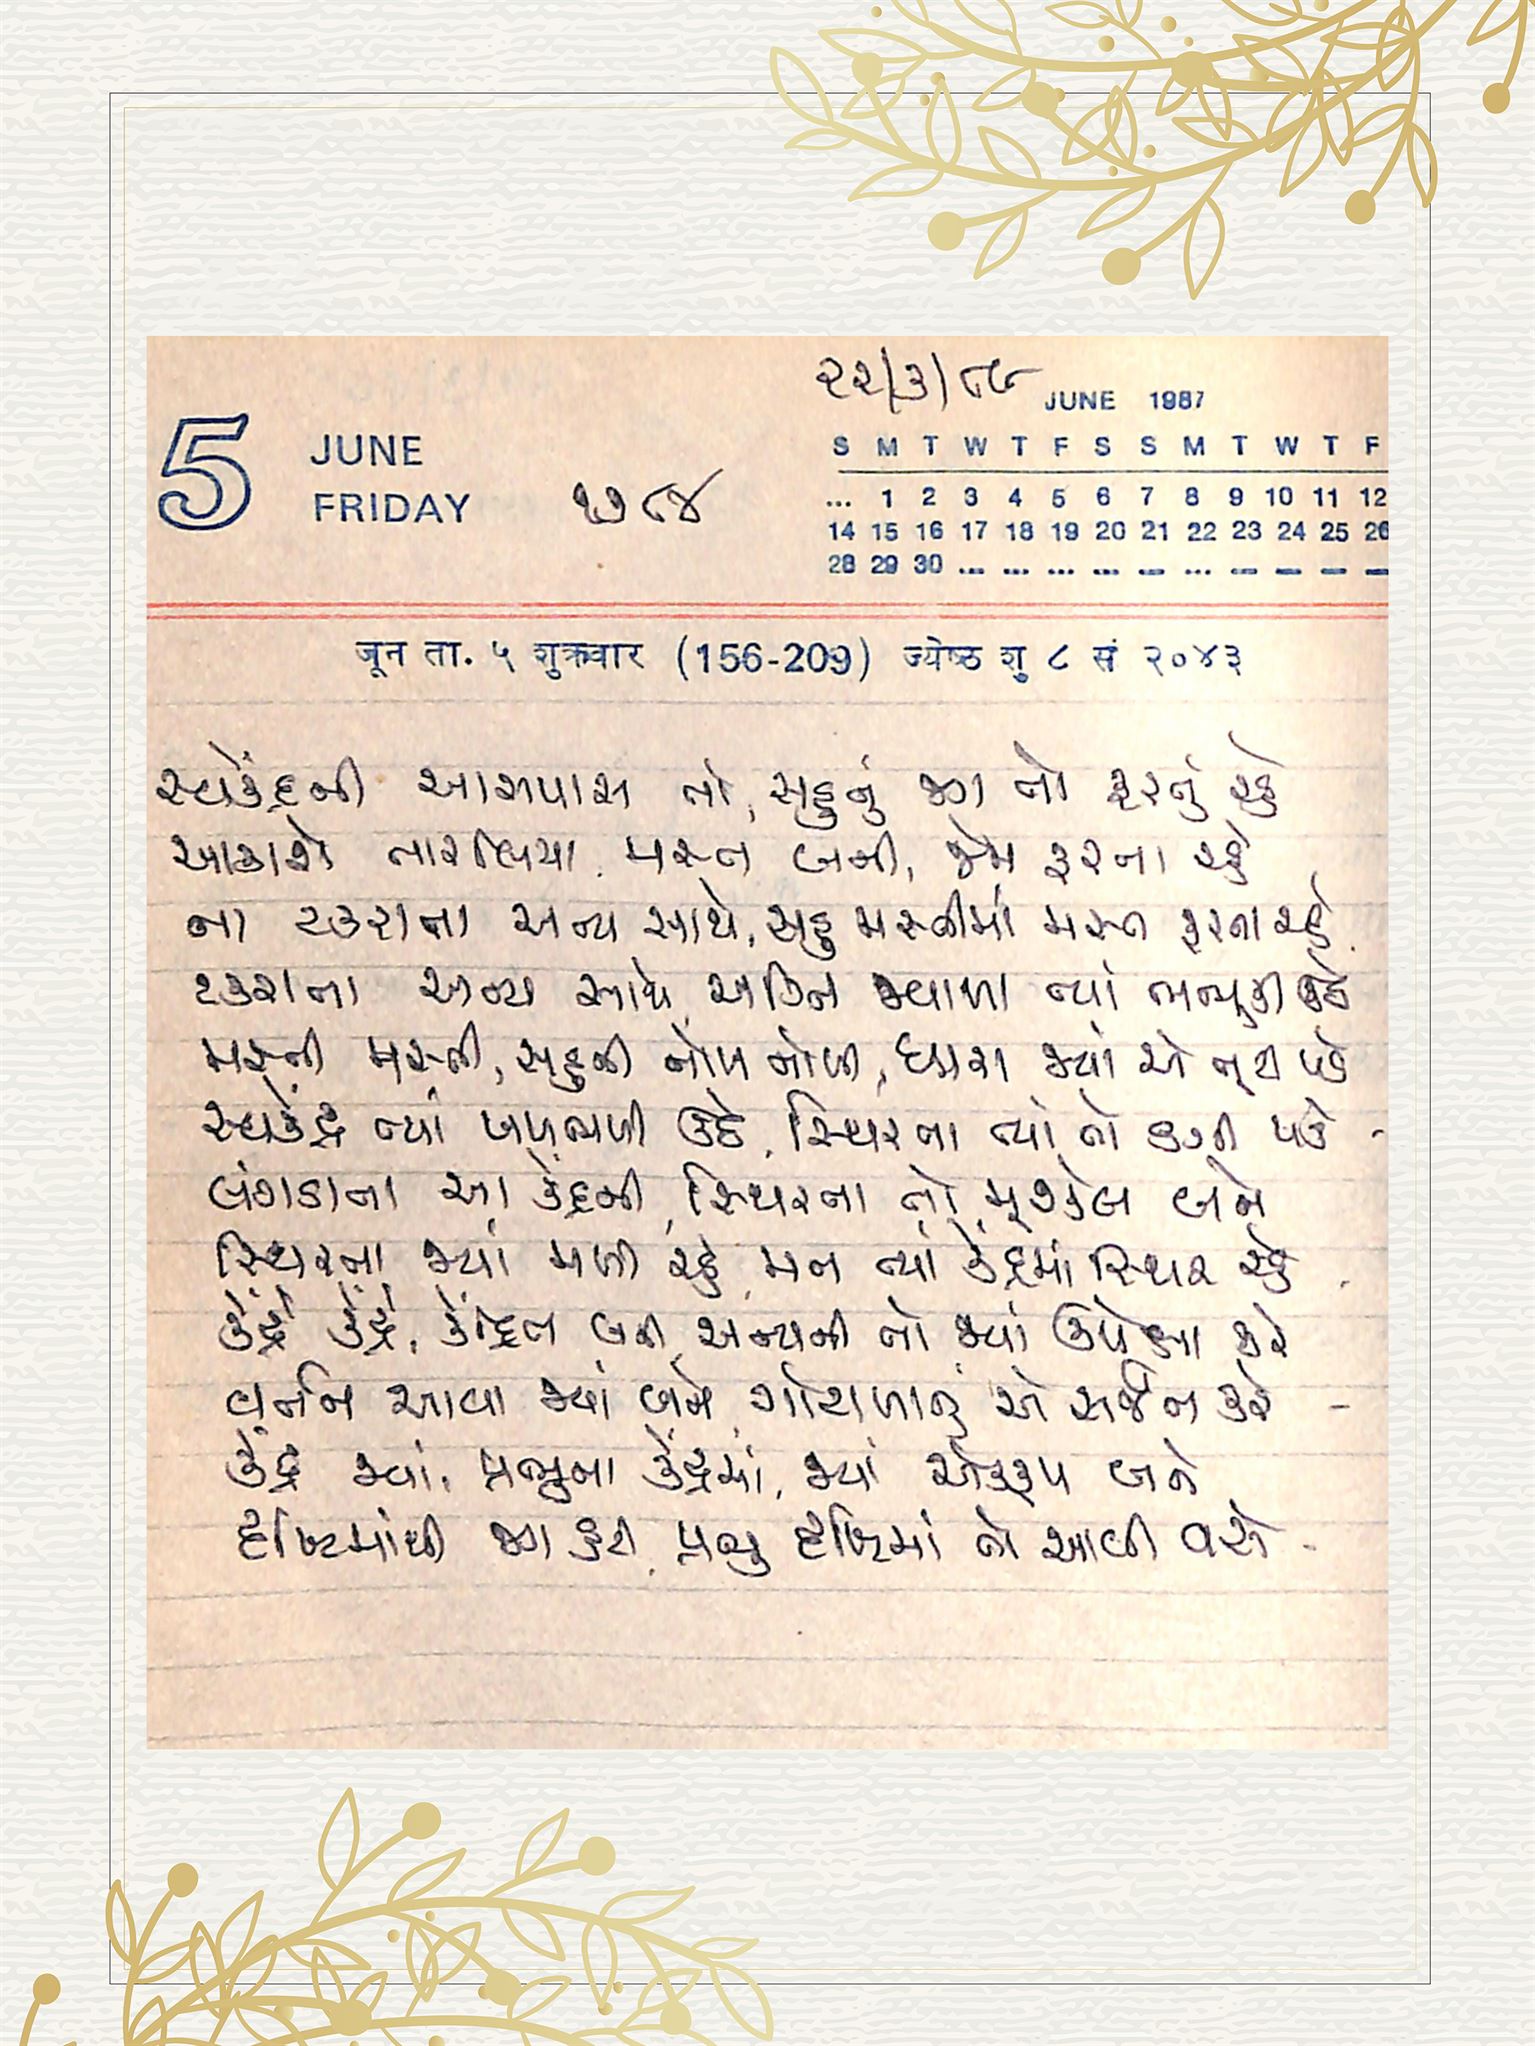 ૨૨/૩/૮૮
JUNE 1987
5 JUNE
FRIDAY
૧૭૮૪
S M T W T F S S M T W T F
... 1 2 3 4 5 6 7 8 9 10 11 12
14 15 16 17 18 19 20 21 22 23 24 25 26
28 29 30 ... ... ... ... ... ... ... ... ... ...
जून ता. ५ शुक्रवार (156-209) ज्येष्ठ शु ८ सं २०४३
સ્વકેંદ્રની આસપાસ તો, સહુનું જગ તો ફરતું રહે
આકાશે તારલિયા મસ્ત બની, જેમ ફરતા રહે
ના ટકરાતા અન્ય સાથે, સહુ મસ્તીમાં મસ્ત ફરતા રહે
ટકરાતા અન્ય સાથે, અગ્નિ જ્વાળા ત્યાં ભભૂકી ઊઠે
મસ્તી મસ્તી, સહુની તોળ તોળી, ધારા જ્યાં એ તૂટી પડે
સ્વકેંદ્ર ત્યાં ખળભળી ઉઠે, સ્થિરતા ત્યાં તો ડગી પડે
લંગડાતા આ કેંદ્રની, સ્થિરતા તો મુશ્કેલ બને
સ્થિરતા જ્યાં મળી રહે, મન ત્યાં કેંદ્રમાં સ્થિર રહે
કેંદ્રે કેંદ્રે, કેંદ્રિત બની, અન્યની તો જ્યાં ઉપેક્ષા કરે
વર્તન આવા જ્યાં બને, ગોટાળાનું એ સર્જન કરે
કેંદ્ર જ્યાં, પ્રભુના કેંદ્રમાં, જ્યાં એકરૂપ બને
દૃષ્ટિમાંથી જગ હટી, પ્રભુ દૃષ્ટિમાં તો આવી વસે